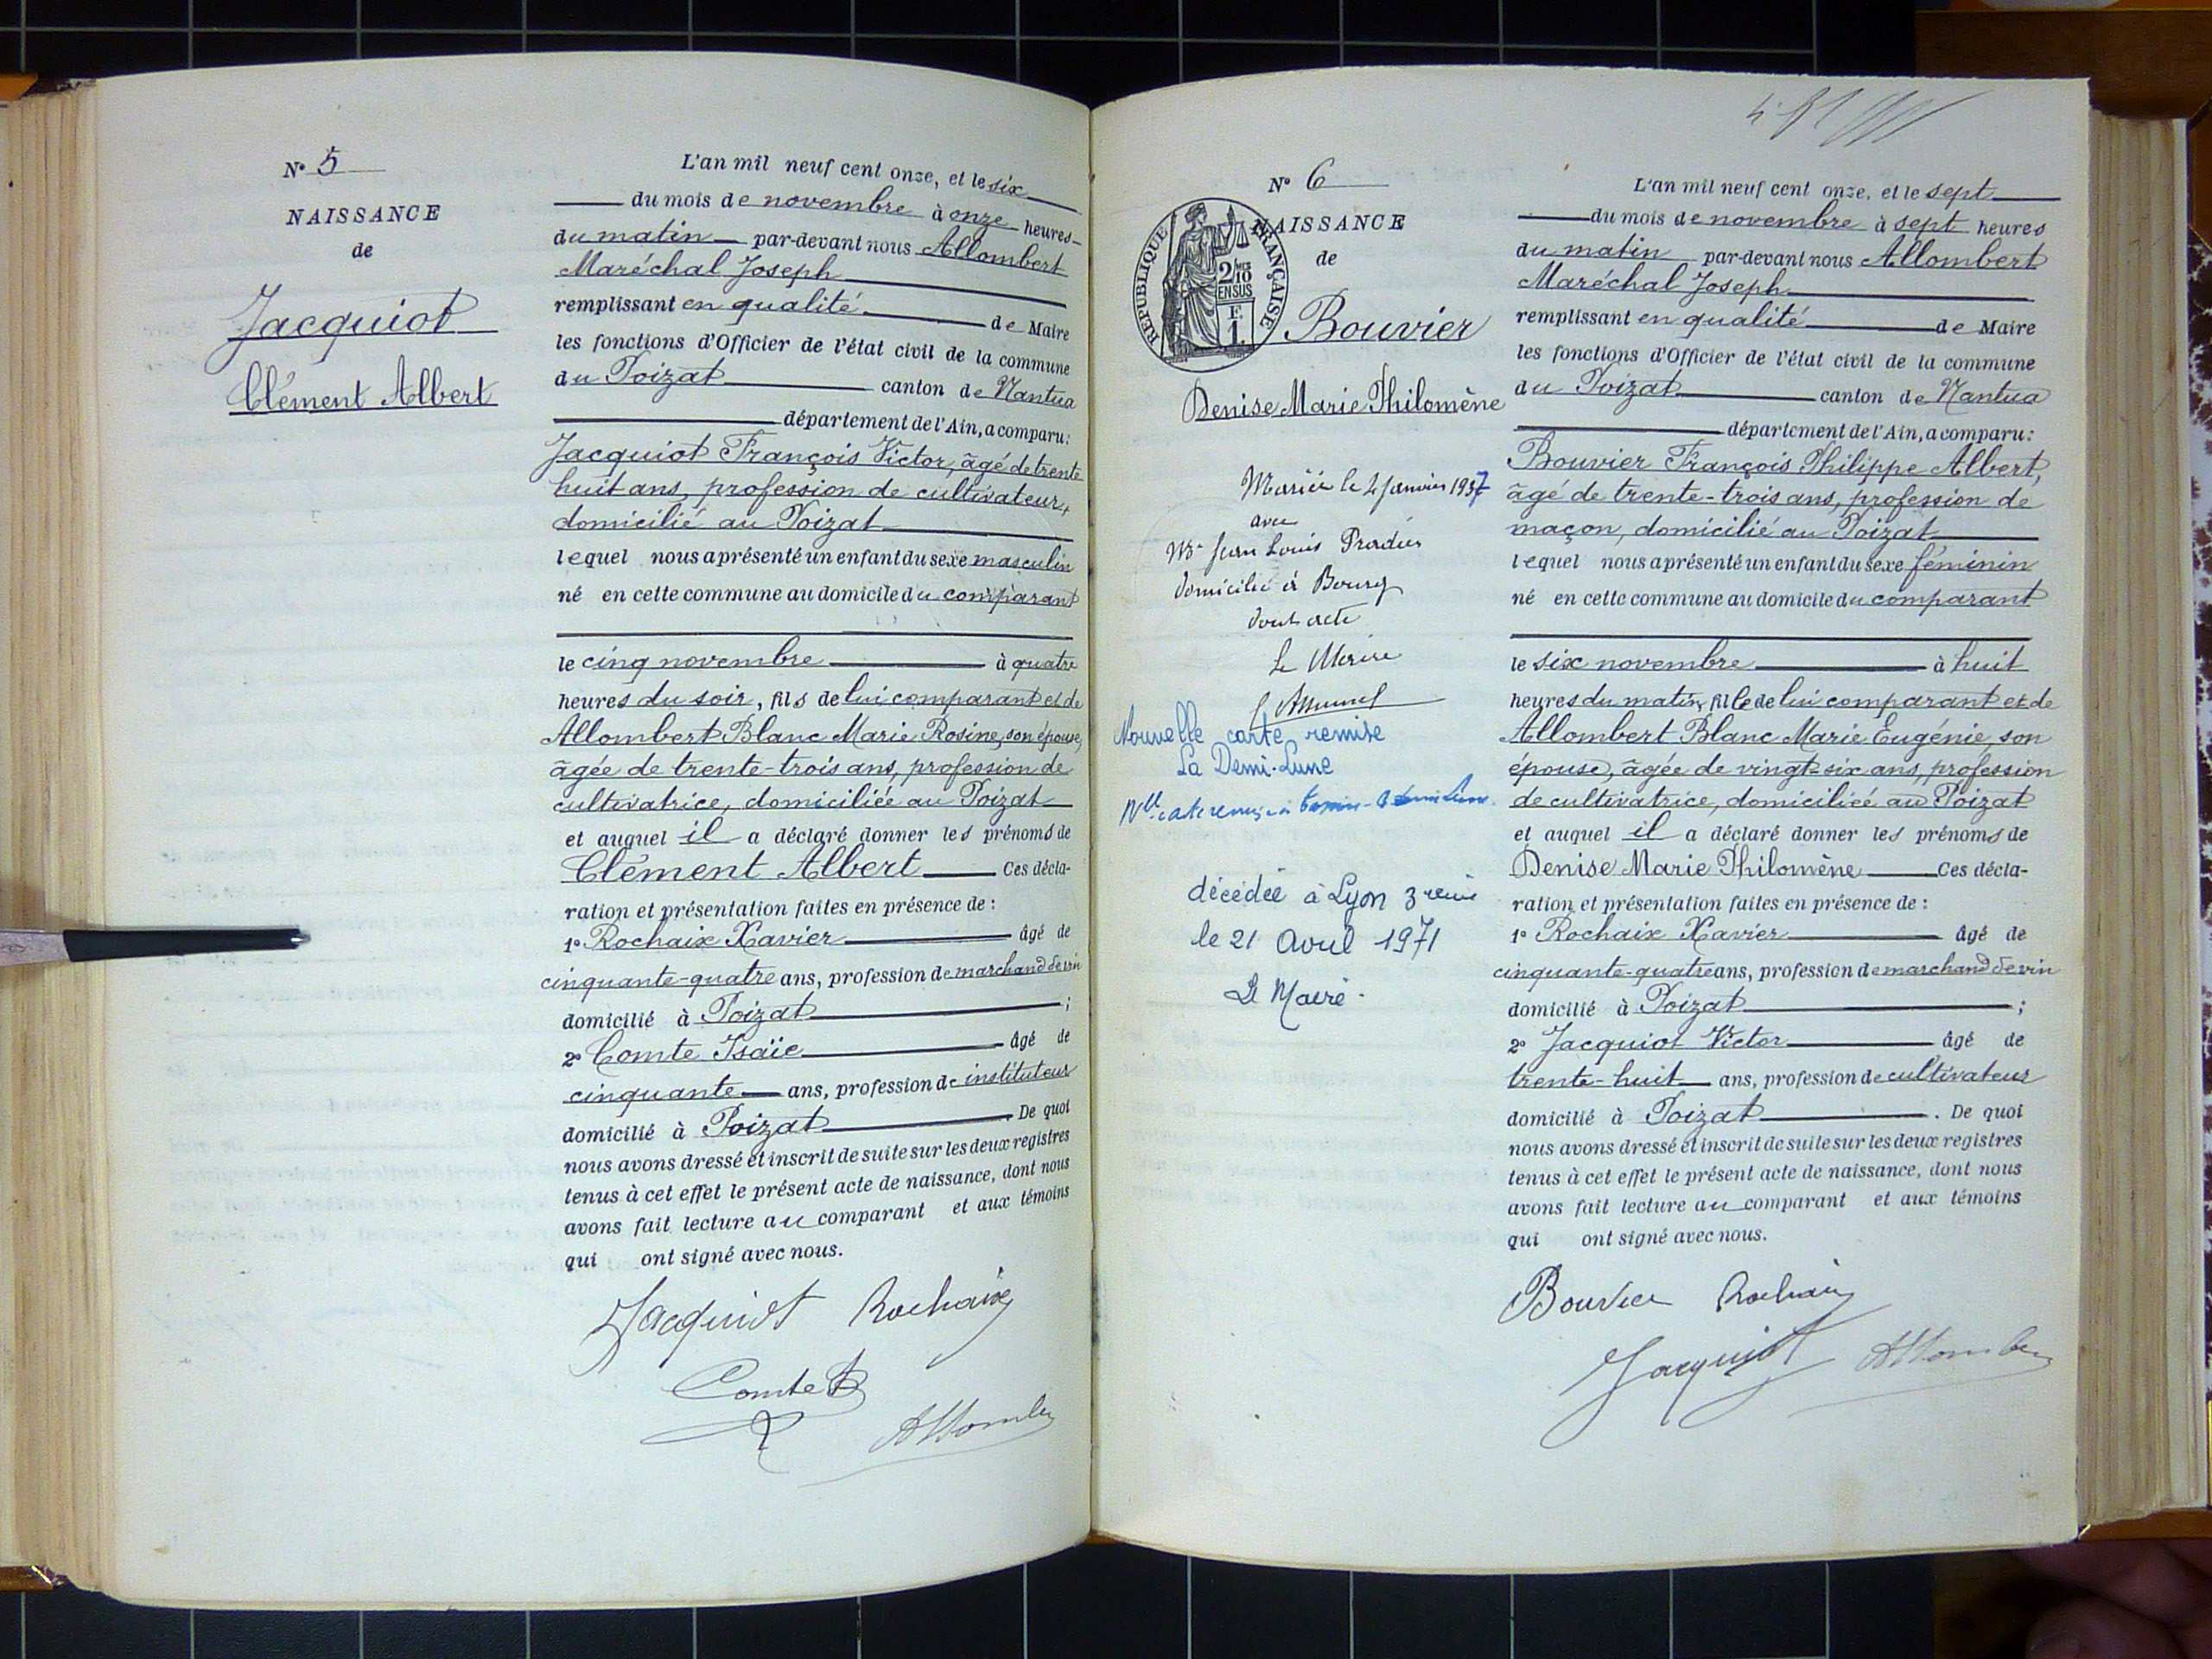 Nº 5
NAISSANCE
de
Jacquiot
Clément Albert
L'an mil neuf cent onze, et le six
du mois de novembre à onze heures
du matin par-devant nous Allombert
Maréchal Joseph
remplissant en qualité de Maire
les fonctions d'Officier de l'état civil de la commune
du Poizat canton de Nantua
département de l'Ain, a comparu:
Jacquiot François Victor, âgé de trente
huit ans, profession de cultivateur,
domicilié au Poizat
lequel nous a présenté un enfant du sexe masculin
né en cette commune au domicile du comparant
le cinq novembre à quatre
heures du soir, fils de lui comparant et de
Allombert Blanc Marie Rosine, son épouse,
âgée de trente-trois ans, profession de
cultivatrice, domiciliée au Poizat
et auquel il a déclaré donner les prénoms de
Clément Albert Ces décla-
ration et présentation faites en présence de :
1º Rochaix Xavier âgé de
cinquante-quatre ans, profession de marchand de vin
domicilié à Poizat ;
2º Comte Isaïe âgé de
cinquante ans, profession de instituteur
domicilié à Poizat. De quoi
nous avons dressé et inscrit de suite sur les deux registres
tenus à cet effet le présent acte de naissance, dont nous
avons fait lecture au comparant et aux témoins
qui ont signé avec nous.
Jacquiot Rochaix
Comte
Allomber
Nº 6
NAISSANCE
de
REPUBLIQUE FRANÇAISE
2/10
EN SUS
F.
1.
Bouvier
Denise Marie Philomène
Mariée le 2 Janvier 1937
avec
Mr Jean Louis Pradier
domicilié à Bourg
dont acte
Le Maire
Nouvelle carte remise
La Demi-Lune
décédée à Lyon 3
le 21 Avril 1971
Le Maire.
L'an mil neuf cent onze, et le sept
du mois de novembre à sept heures
du matin par-devant nous Allombert
Maréchal Joseph
remplissant en qualité de Maire
les fonctions d'Officier de l'état civil de la commune
du Poizat canton de Nantua
département de l'Ain, a comparu:
Bouvier François Philippe Albert,
âgé de trente-trois ans, profession de
maçon, domicilié au Poizat
lequel nous a présenté un enfant du sexe féminin
né en cette commune au domicile du comparant
le six novembre à huit
heures du matin, fille de lui comparant et de
Allombert Blanc Marie Eugénie, son
épouse, âgée de vingt-six ans, profession
de cultivatrice, domiciliée au Poizat
et auquel il a déclaré donner les prénoms de
Denise Marie Philomène Ces décla-
ration et présentation faites en présence de :
1º Rochaix Xavier âgé de
cinquante-quatre ans, profession de marchand de vin
domicilié à Poizat ;
2º Jacquiot Victor âgé de
trente-huit ans, profession de cultivateur
domicilié à Poizat . De quoi
nous avons dressé et inscrit de suite sur les deux registres
tenus à cet effet le présent acte de naissance, dont nous
avons fait lecture au comparant et aux témoins
qui ont signé avec nous.
Bouvier Rochaix
Jacquiot Allomber